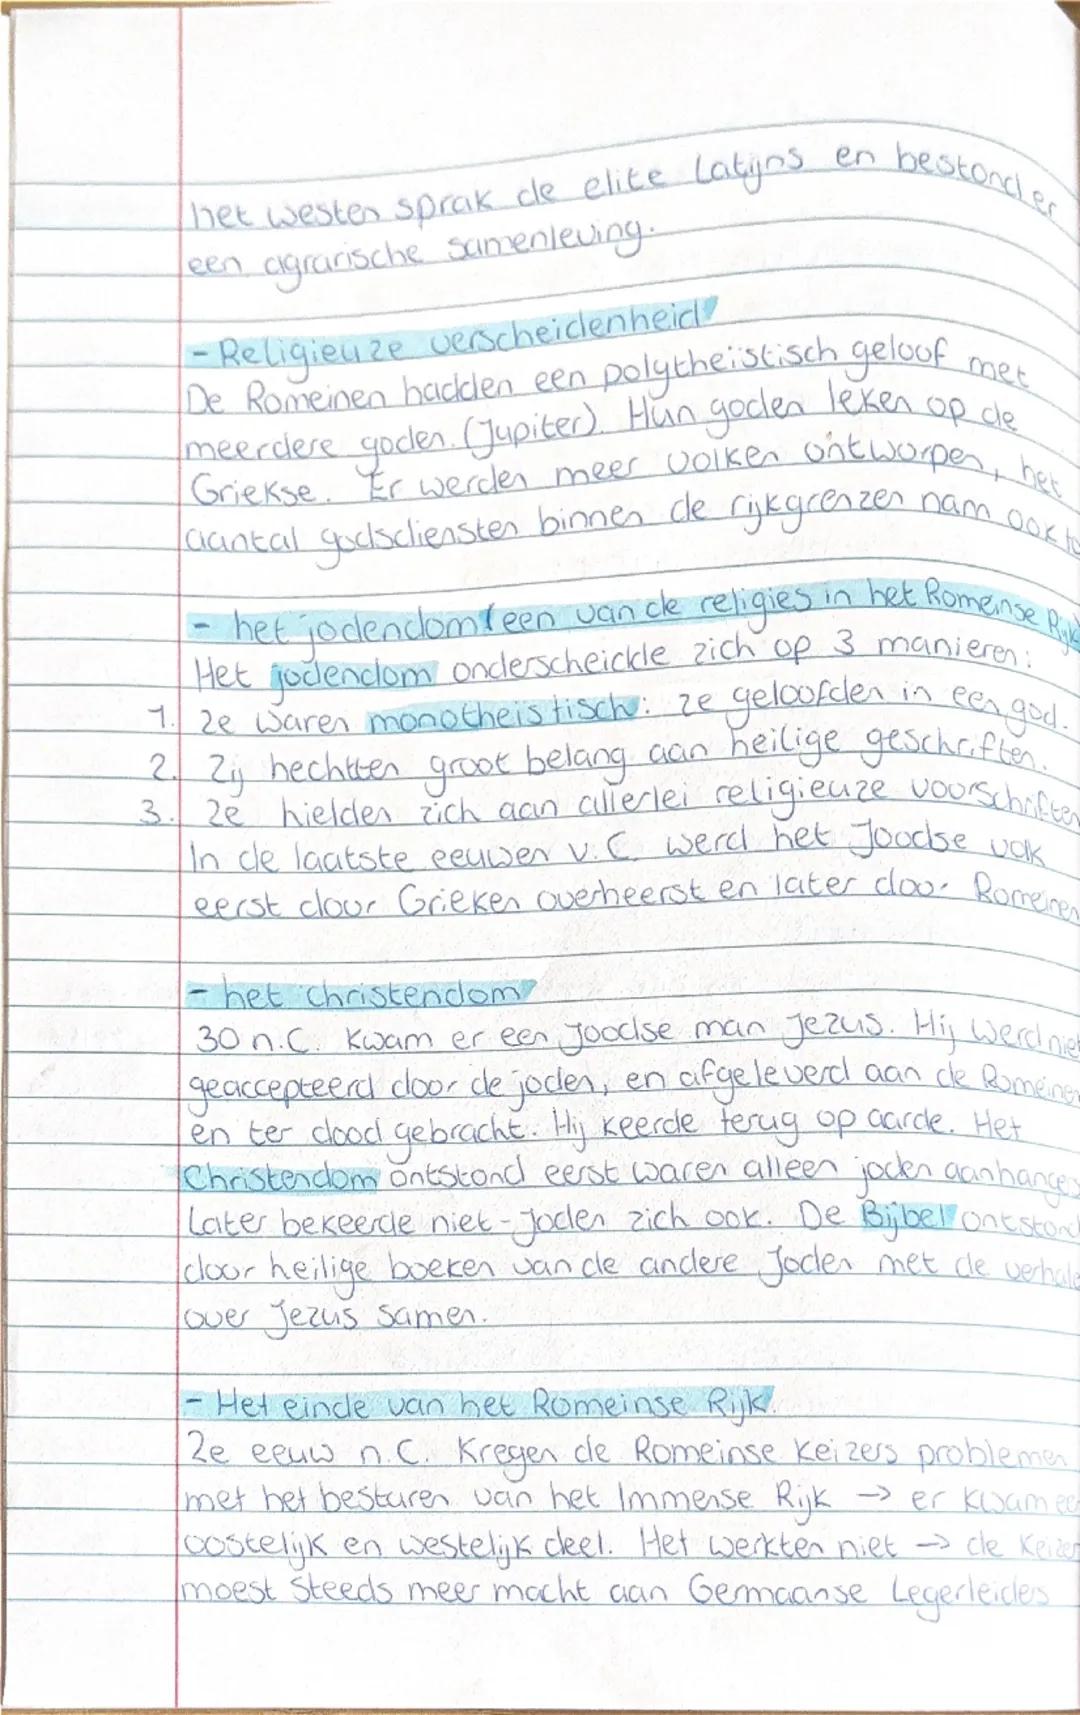 het westen sprak de elite Latijns en bestond er
een agrarische samenleving.
- Religieuze verscheidenheid
De Romeinen hadden een polytheistisch geloof met
meerdere goden. (Jupiter). Hun goden leken op de
Griekse. Er werden meer volken ontworpen, het
aantal godsdiensten binnen de rijkgrenzen nam ook to
- het jodendom (een van de religies in het Romeinse Rijk
Het jodendom onderscheidde zich op 3 manieren:
1. Ze waren monotheistisch: ze geloofden in een god.
2. Zij hechtten groot belang aan heilige geschriften.
3. Ze hielden zich aan allerlei religieuze voorschriften
In de laatste eeuwen v.C. werd het Joodse volk
eerst door Grieken overheerst en later door Romeinen
- het christendom
30 n.C. kwam er een Joodse man Jezus. Hij werd niet
geaccepteerd door de joden, en afgeleverd aan de Romeinen
en ter dood gebracht. Hij keerde terug op aarde. Het
Christendom ontstond eerst waren alleen joden aanhangers
Later bekeerde niet-Joden zich ook. De Bijbel ontstond
door heilige boeken van de andere Joden met de verhale
over Jezus samen.
- Het einde van het Romeinse Rijk.
2e eeuw n.C. Kregen de Romeinse keizers problemen
met het besturen van het Immense Rijk → er kwam een
oostelijk en westelijk deel. Het werkten niet → de Keizer
moest steeds meer macht aan Germaanse Legerleiders